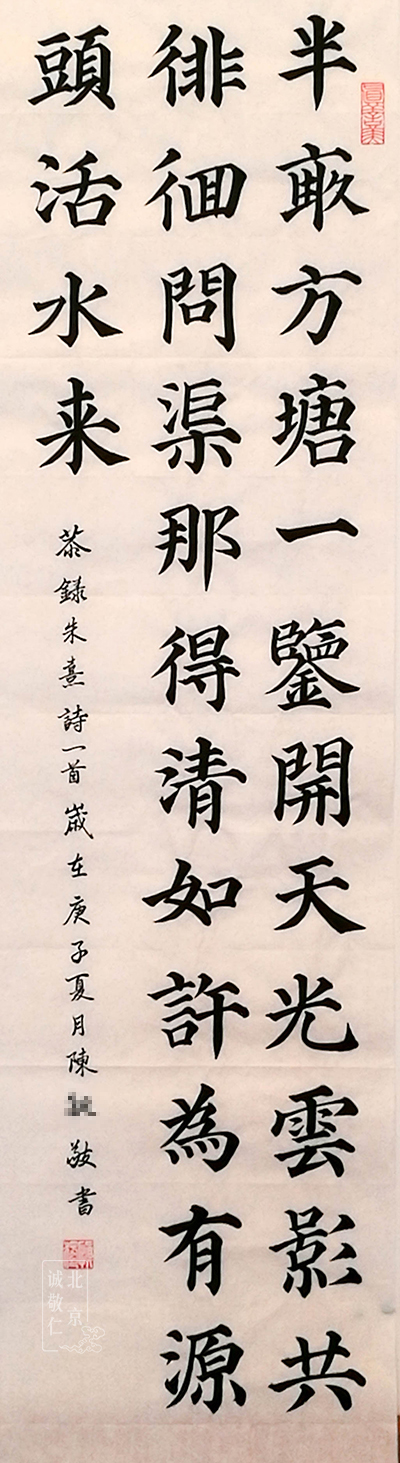 半畝方塘一鑒開天光雲影共
徘徊問渠那得清如許為有源
頭活水来
恭錄朱熹詩一首歲在庚子夏月陳 敬書
北京
诚敬仁